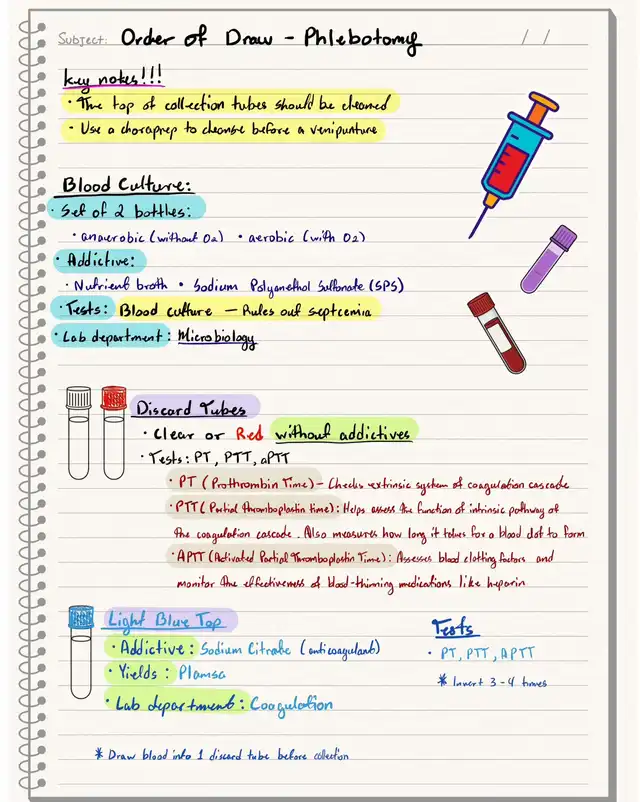 Subject: Order of Draw - Phlebotomy / /
key notes!!!
• The top of collection tubes should be cleaned
• Use a choraprep to cleanse before a venipunture
Blood Culture:
• Set of 2 bottles:
• anaerobic (without O2) • aerobic (with O2)
• Addictive:
• Nutrient broth • Sodium Polyanethol Sulfonate (SPS)
• Tests: Blood culture - Rules out septcemia
• Lab department: Microbiology
Discard Tubes
• Clear or Red without addictives
• Tests: PT, PTT, aPTT
• PT (Prothrombin Time) - Checks extrinsic system of coagulation cascade
• PTT (Partial thromboplastin time): Helps assess the function of intrinsic pathway of
the coagulation cascade. Also measures how long it takes for a blood clot to form
• APTT (Activated Partial Thromboplastin Time): Assesses blood clotting factors and
monitor the effectiveness of blood-thinning medications like heparin
Light Blue Top
• Addictive: Sodium Citrate (anticoagulant)
• Yields: Plamsa
• Lab department: Coagulation
Tests
• PT, PTT, APTT
* Invert 3-4 times
* Draw blood into 1 discard tube before collection